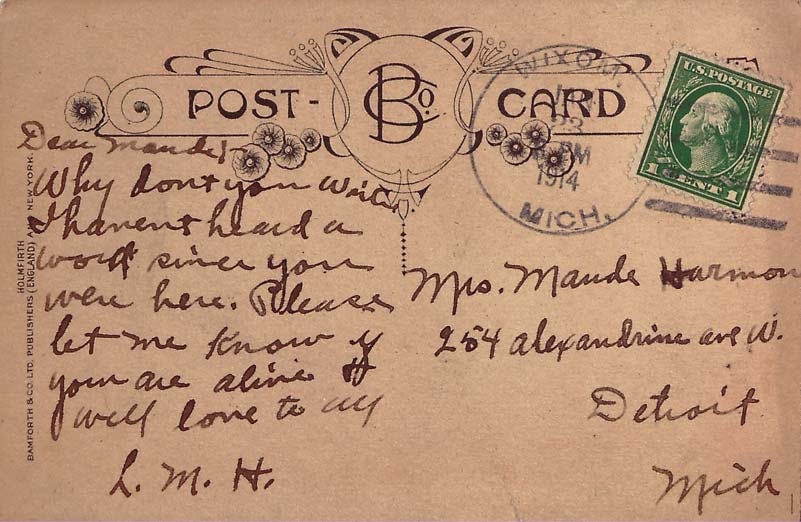 POST-
BCo.
CARD
WIXOM,
23
PM
1914
MICH.
U.S. POSTAGE
1 CENT 1
HOLMFIRTH
BAMFORTH & CO. LTD. PUBLISHERS (ENGLAND) AND NEW YORK.
Dear Maude;
Why dont you write.
I havent heard a
word since you
were here. Please
let me know if
your are alive &
well love to all
L. M. H.
Mrs. Maude Harmon
254 alexandrine ave W.
Detroit
Mich